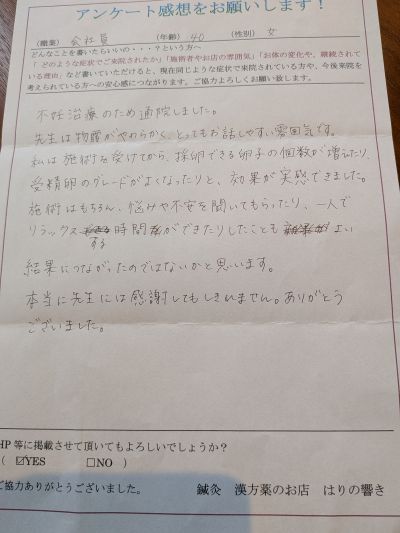 アンケート感想をお願いします！
(職業) 会社員 (年齢) 40 (性別) 女
どんなことを書いたらいいの・・・？という方へ
「どのような症状でご来院されたか」「施術者やお店の雰囲気」「お体の変化や、継続されて
いる理由」など書いていただけると、現在同じような症状で来院されている方や、今後来院を
考えられている方への安心感につながります。ご協力よろしくお願い致します。
不妊治療のため通院しました。
先生は物腰がやわらかく、とってもお話しやすい雰囲気です。
私は施術を受けてから、採卵できる卵子の個数が増えたり、
受精卵のグレードがよくなったりと、効果が実感できました。
施術はもちろん、悩みや不安を聞いてもらったり、一人で
リラックスする時間ができたりしたことも よい
結果につながったのではないかと思います。
本当に先生には感謝してもしきれません。ありがとう
ございました。
HP 等に掲載させて頂いてもよろしいでしょうか？
( ☑YES □NO )
ご協力ありがとうございました。 鍼灸 漢方薬のお店 はりの響き